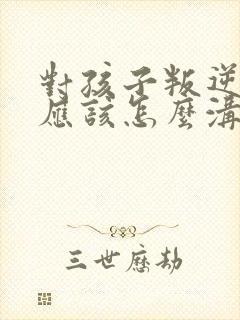 對孩子叛逆
應該怎麼溝
三世應劫